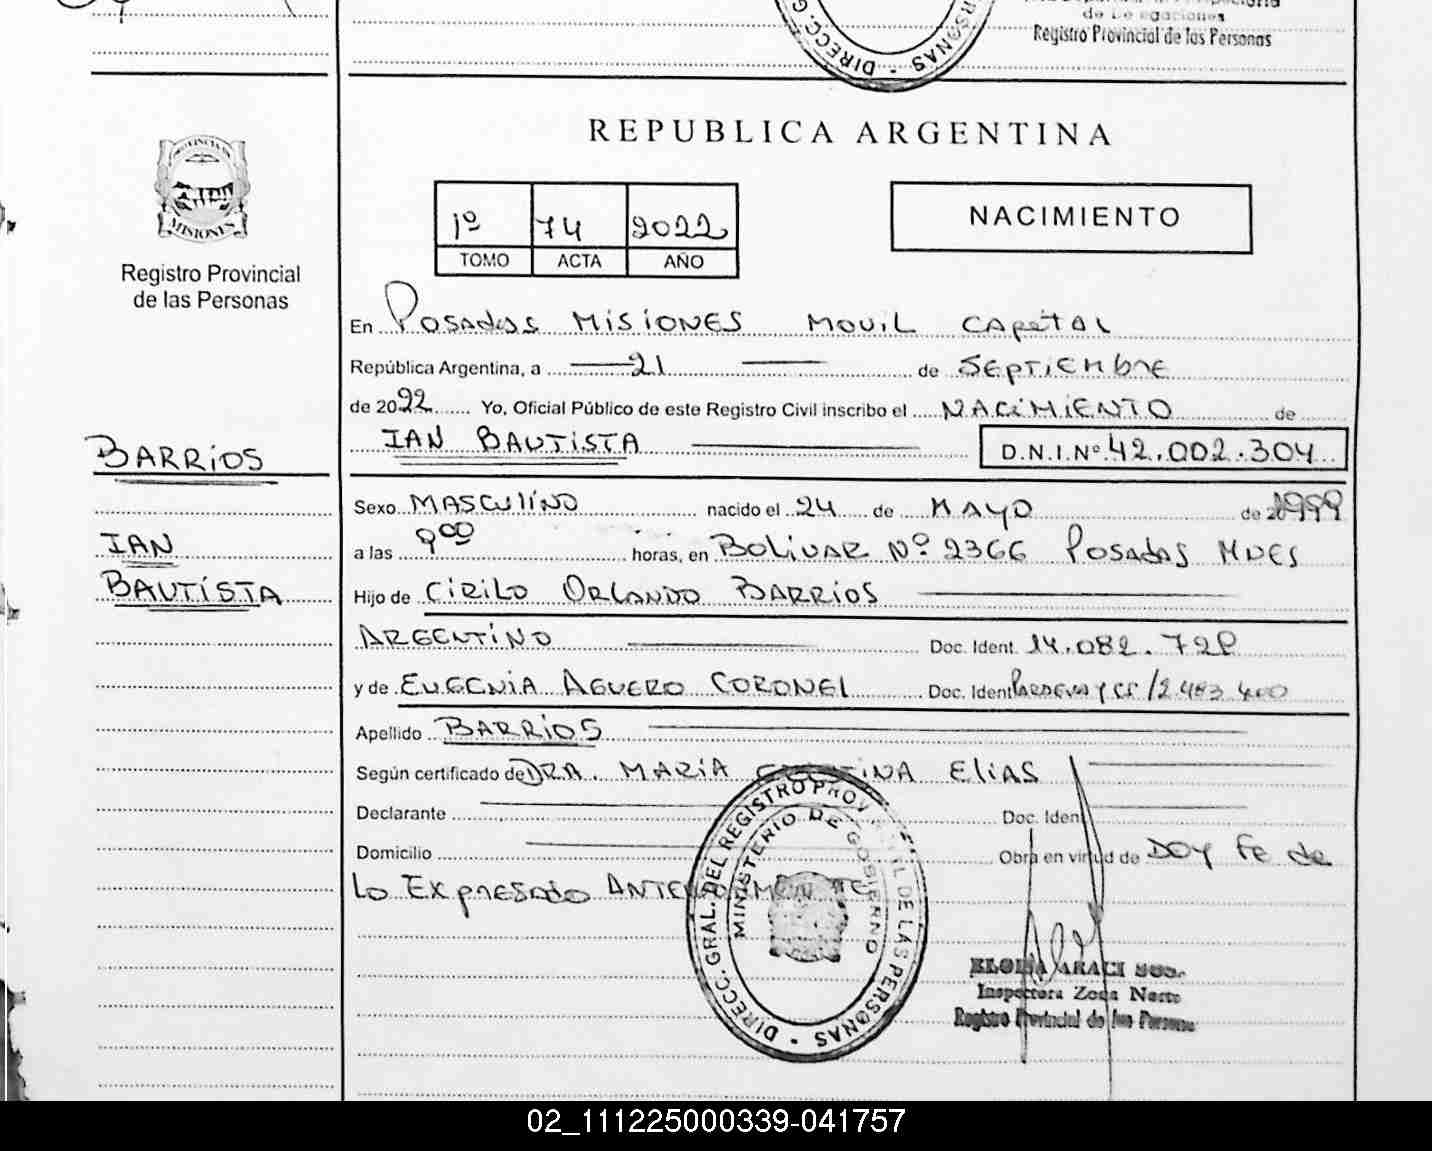 de Delegaciones
Registro Provincial de las Personas
DIRECC. G
PERSONAS
REPUBLICA ARGENTINA
PROVINCIA DE
MISIONES
Registro Provincial
de las Personas
1º 74 2022
TOMO ACTA AÑO
NACIMIENTO
En Posadas Misiones Movil Capital
República Argentina, a 21 de Septiembre
de 2022 Yo, Oficial Público de este Registro Civil inscribo el NACIMIENTO de
IAN BAUTISTA D.N.I.Nº 42.002.304
BARRIOS
IAN
BAUTISTA
Sexo MASCULINO nacido el 24 de MAYO de 1999
a las 9:00 horas, en Bolivar Nº 2366 Posadas Mnes
Hijo de Cirilo Orlando Barrios
Argentino Doc. Ident. 14.082.728
y de Eugenia Aguero Coronel Doc. Ident
Apellido Barrios
Según certificado de DRA. MARIA CRISTINA ELIAS
Declarante Doc. Ident
Domicilio Obra en virtud de Doy Fe de
Lo Expresado Anteriormente
DIRECC. GRAL. DEL REGISTRO PROVINCIAL DE LAS PERSONAS
MINISTERIO DE GOBIERNO
ARACI
Inspectora Zona Norte
Registro Provincial de las Personas
02_111225000339-041757